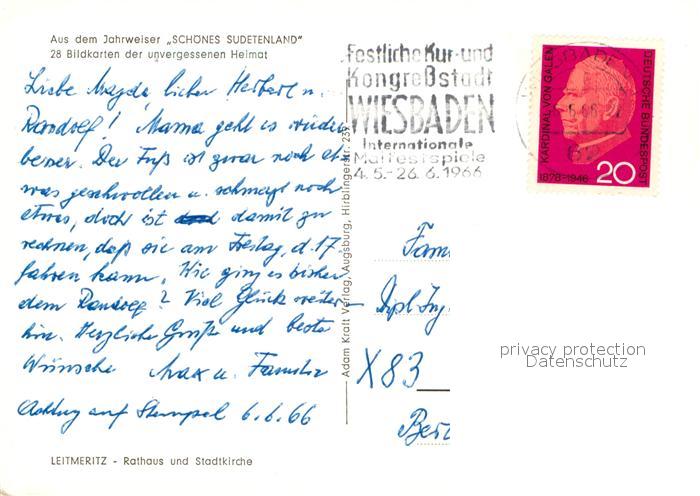 Aus dem Jahrweiser „SCHÖNES SUDETENLAND"
28 Bildkarten der unvergessenen Heimat
Liebe Magda, lieber Herbert u.
Randolf! Mama geht es wieder
besser. Der Fuß ist zwar noch et-
was geschwollen u. schmerzt noch
etwas, doch ist damit zu
rechnen, daß sie am Freitag, d. 17.
fahren kann. Wie ging es bisher
dem Randolf? Viel Glück weiter-
hin. Herzliche Grüße und beste
Wünsche Max u. Familie
Achtung auf Stempel 6.6.66
LEITMERITZ - Rathaus und Stadtkirche
Adam Kraft Verlag, Augsburg, Hirblingerstr. 239
Festliche Kur- und
Kongreßstadt
WIESBADEN
Internationale
Maifestspiele
4.5.-26.6.1966
WIESBADEN
62
KARDINAL VON GALEN
1878-1946
DEUTSCHE BUNDESPOST
20
Fam
Dipl. Ing
X83
Ber
privacy protection
Datenschutz